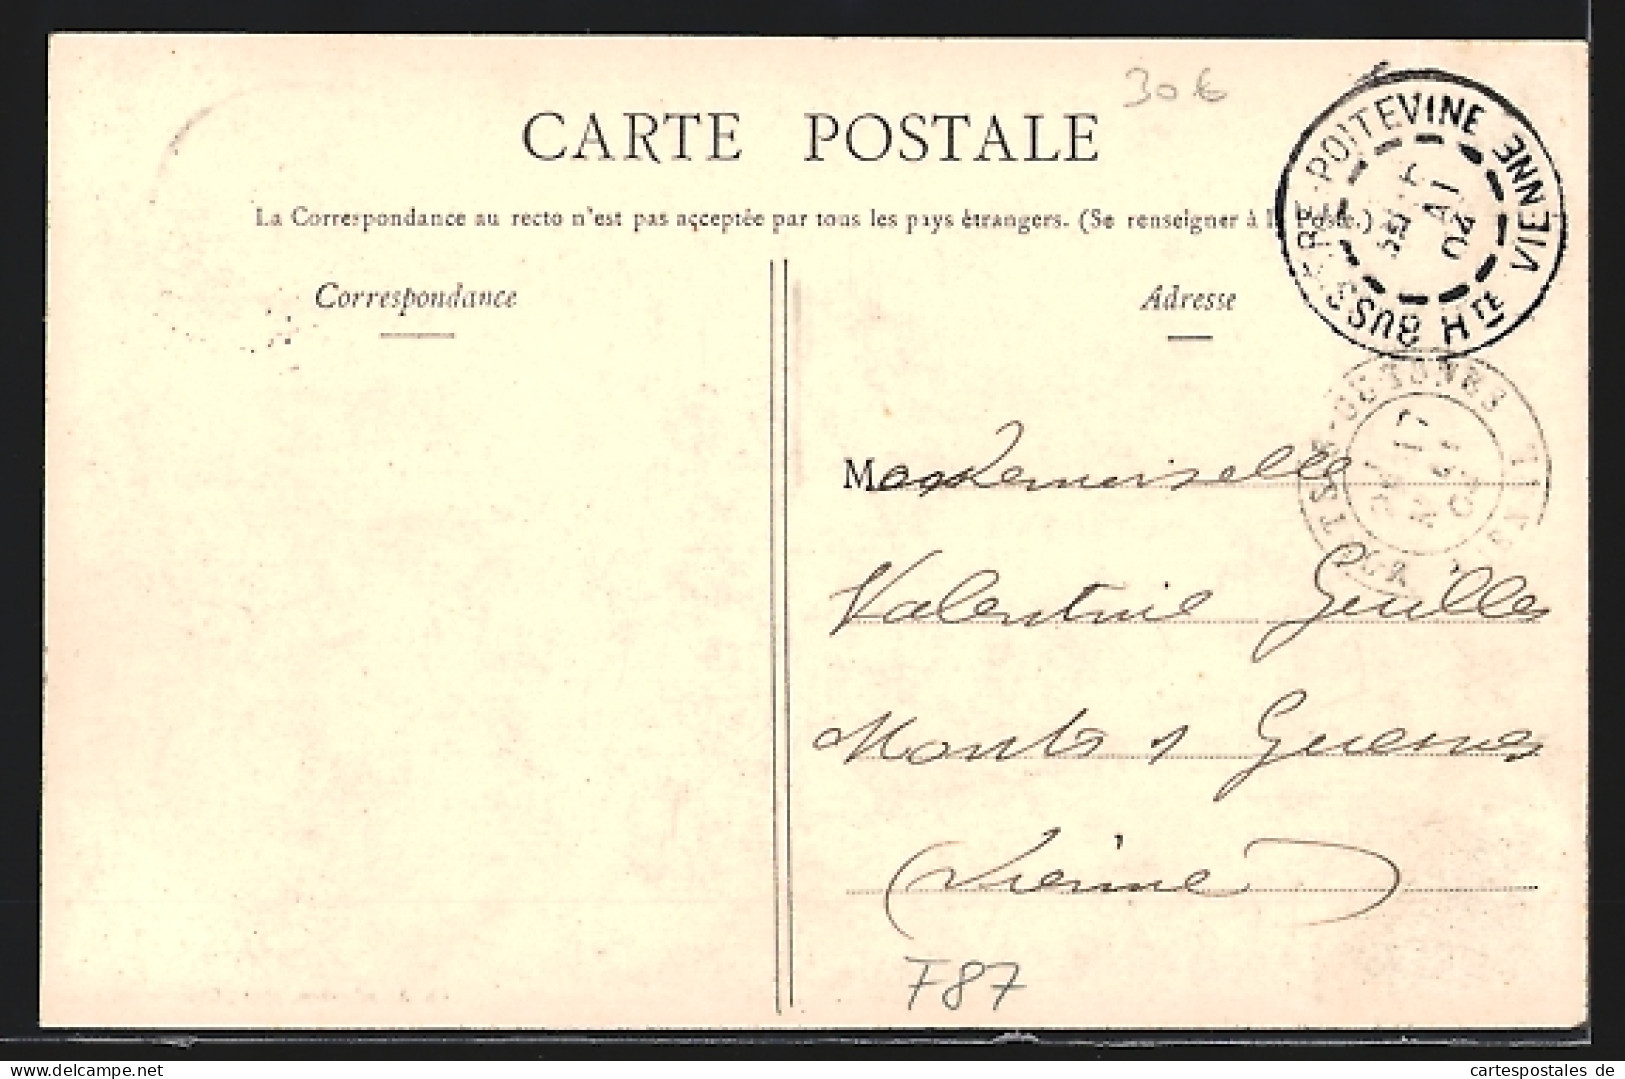 30 €
CARTE POSTALE
La Correspondance au recto n'est pas acceptée par tous les pays étrangers. (Se renseigner à la Poste.)
Correspondance
Adresse
BUSSIÈRE-POITEVINE
HTE VIENNE
04
Mademoiselle
Valentine Guilles
Monts s Guesnes
(Vienne)
F87
www.delcampe.net
cartespostales de